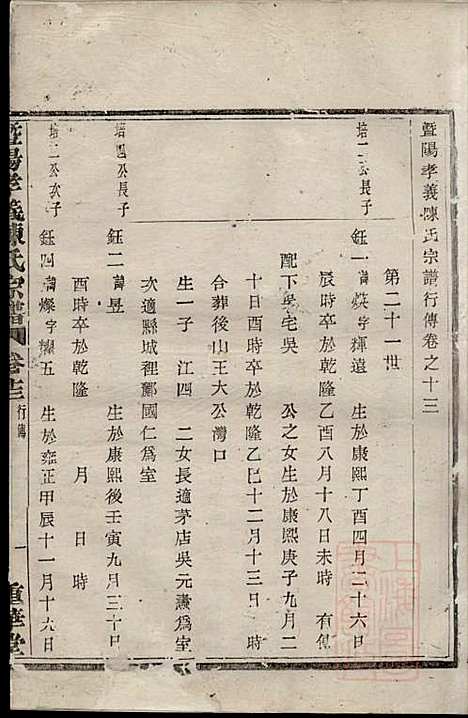 暨陽孝義陳氏宗譜行傳卷之十三
第二十一世
培二公長子
鈺一 諱 字輝遠 生於康熙丁酉四月二十六日
辰時卒於乾隆乙酉八月十八日未時 有傳
配下吳宅吳 公之女生於康熙庚子九月二
十日酉時卒於乾隆乙巳十二月十三日 時
合葬後山王大公灣口
生一子 江四 二女長適茅店吳元 為室
次適縣城裡酈國仁為室
培四公長子
鈺二 諱昱 生於康熙後壬寅九月三十日
酉時卒於乾隆 月 日 時
培二公次子
鈺四 諱燦字耀五 生於雍正甲辰十一月十六日
暨陽孝義陳氏宗譜 卷十三 行傳 一 重華堂